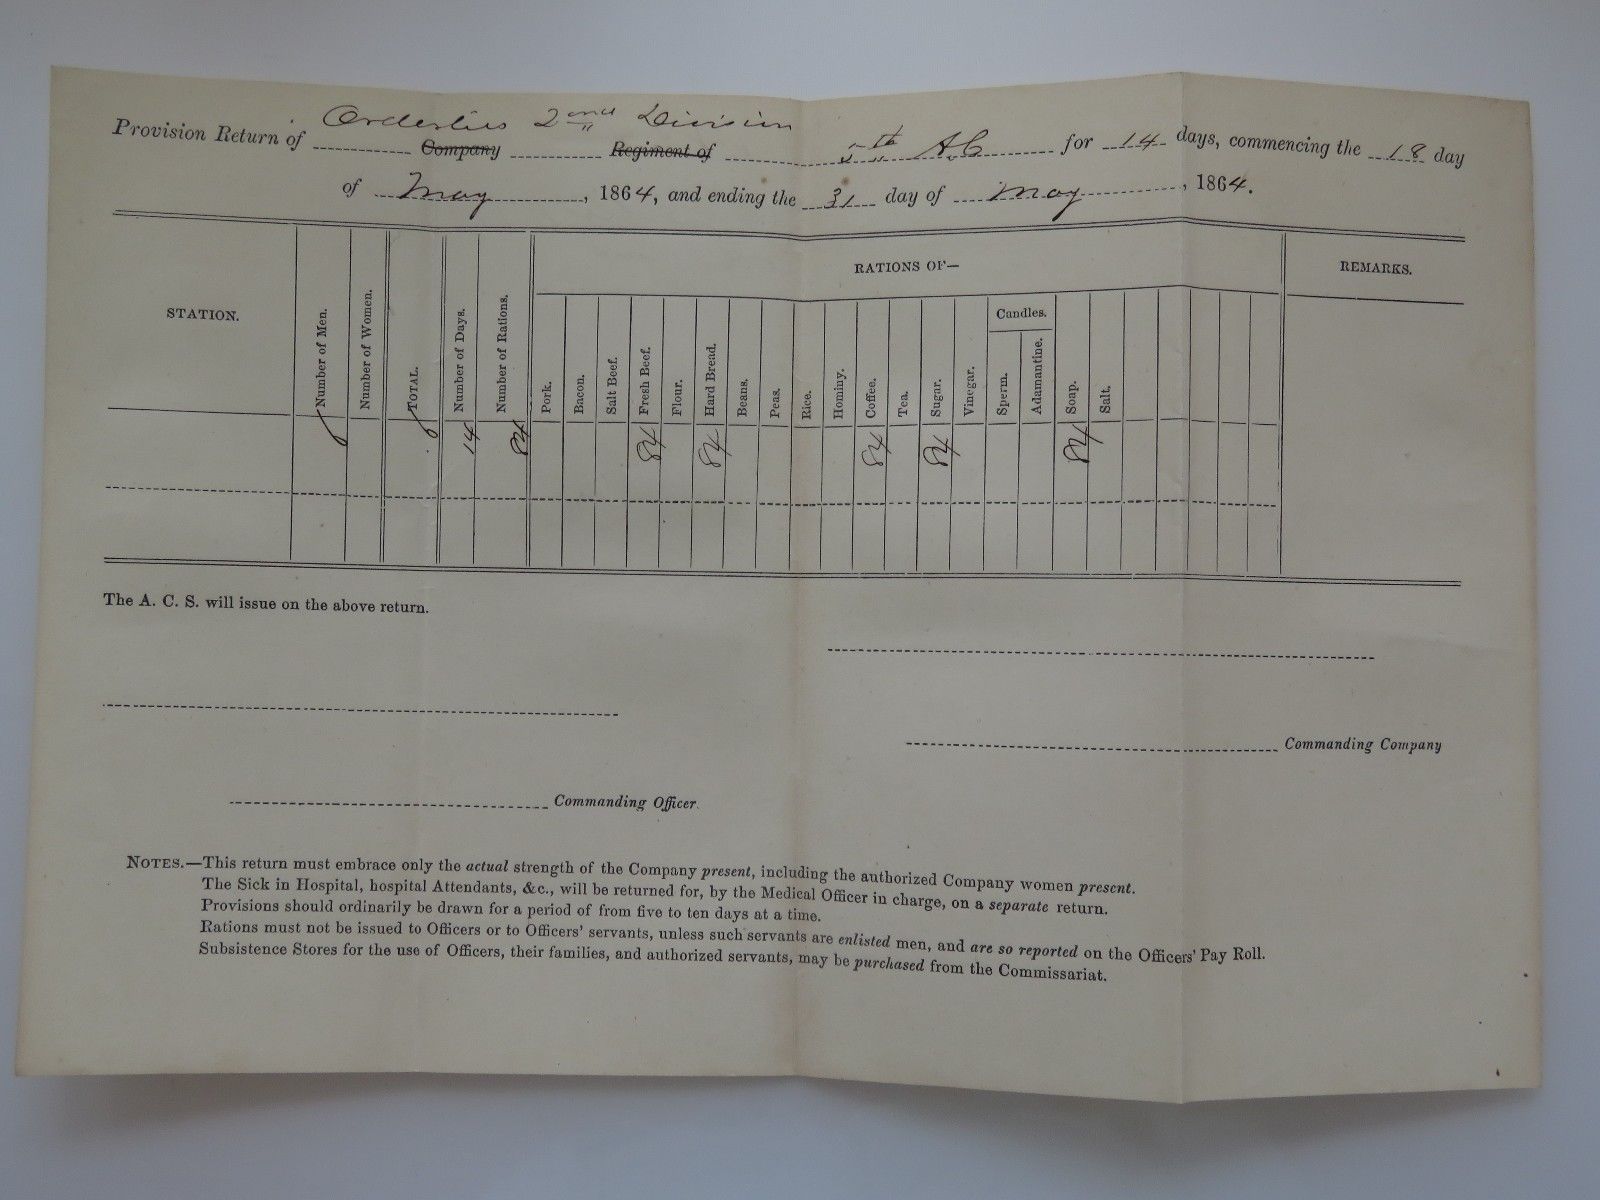 Orderlies 2nd Division
Provision Return of Company Regiment of 5th AC for 14 days, commencing the 18 day
of May, 1864, and ending the 31 day of May, 1864.
STATION. Number of Men. Number of Women. TOTAL. Number of Days. Number of Rations. RATIONS OF— REMARKS.
Pork. Bacon. Salt Beef. Fresh Beef. Flour. Hard Bread. Beans. Peas. Rice. Hominy. Coffee. Tea. Sugar. Vinegar. Candles. Sperm. Adamantine. Soap. Salt.
6 6 14 84 84 84 84 84 84
The A. C. S. will issue on the above return.
Commanding Company
Commanding Officer.
NOTES.—This return must embrace only the actual strength of the Company present, including the authorized Company women present.
The Sick in Hospital, hospital Attendants, &c., will be returned for, by the Medical Officer in charge, on a separate return.
Provisions should ordinarily be drawn for a period of from five to ten days at a time.
Rations must not be issued to Officers or to Officers' servants, unless such servants are enlisted men, and are so reported on the Officers' Pay Roll.
Subsistence Stores for the use of Officers, their families, and authorized servants, may be purchased from the Commissariat.